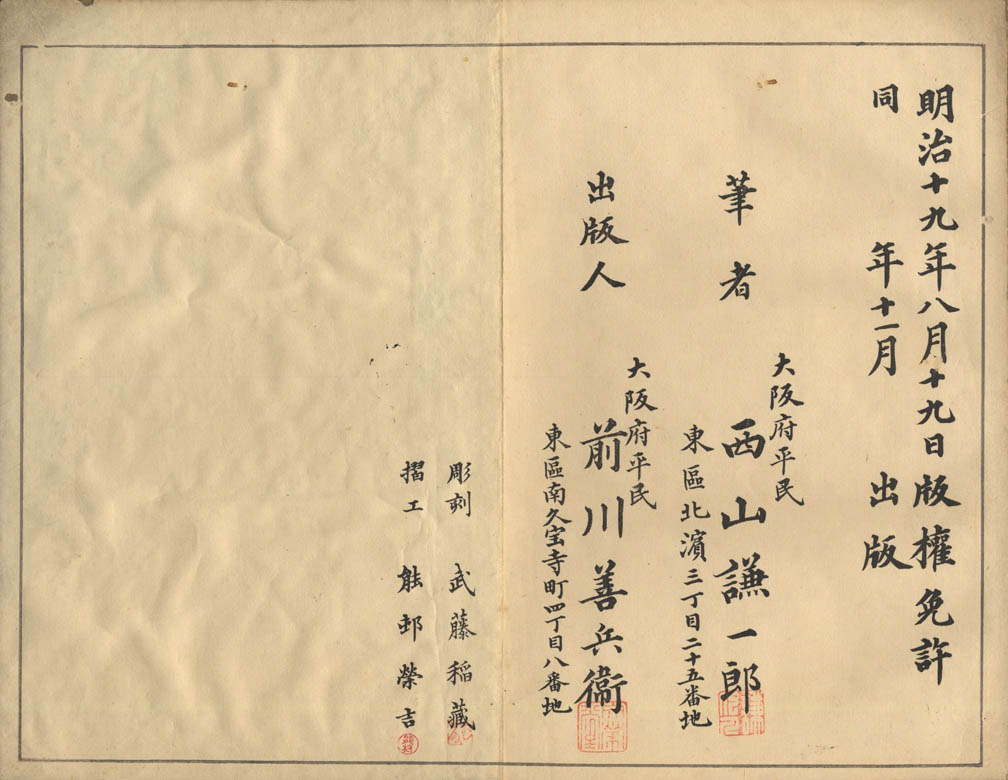 明治十九年八月十九日版權免許
同年十一月出版
大阪府平民
筆者 西山謙一郎
東區北濵三丁目二十五番地
大阪府平民
出版人 前川善兵衞
東區南久宝寺町四丁目八番地
彫刻 武藤稲藏
摺工 熊邨榮吉